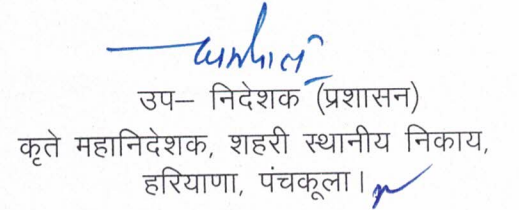 उप– निदेशक (प्रशासन)
कृते महानिदेशक, शहरी स्थानीय निकाय,
हरियाणा, पंचकूला।